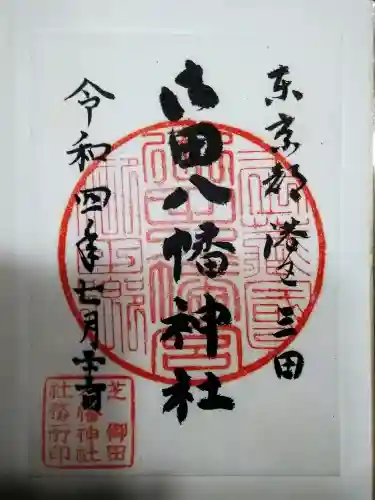 東京都港区三田
御田八幡神社
令和四年七月
芝御田
八幡神社
社務所印